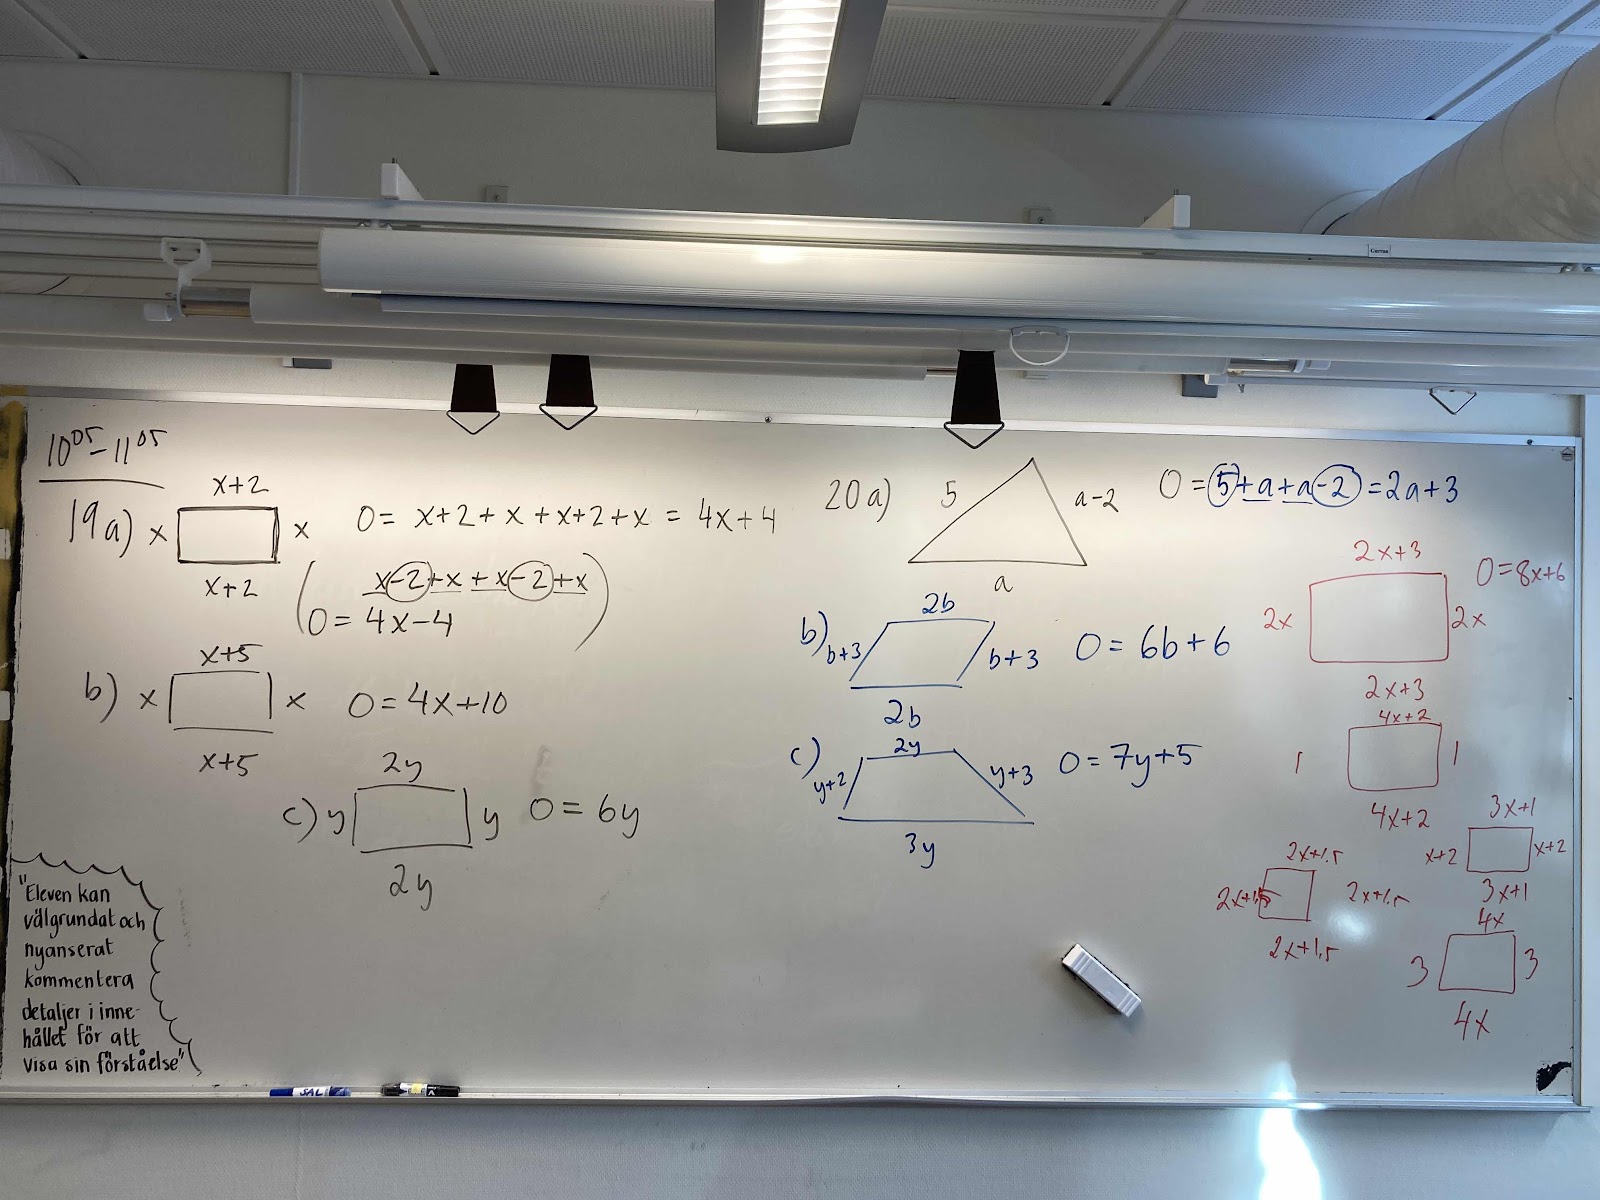 10⁰⁵–11⁰⁵
19 a)
x+2
x
x
x+2
O = x+2+x+x+2+x = 4x+4
(x-2+x+x-2+x
O = 4x-4)
b)
x+5
x
x
x+5
O = 4x+10
c)
2y
y
y
2y
O = 6y
"Eleven kan
välgrundat och
nyanserat
kommentera
detaljer i inne-
hållet för att
visa sin förståelse"
20 a)
5
a-2
a
O = 5+a+a-2 = 2a+3
b)
2b
b+3
b+3
2b
O = 6b+6
c)
2y
y+2
y+3
3y
O = 7y+5
2x+3
2x
2x
2x+3
O = 8x+6
4x+2
1
1
4x+2
3x+1
x+2
x+2
3x+1
2x+1.5
2x+1.5
2x+1.5
2x+1.5
4x
3
3
4x
SAL